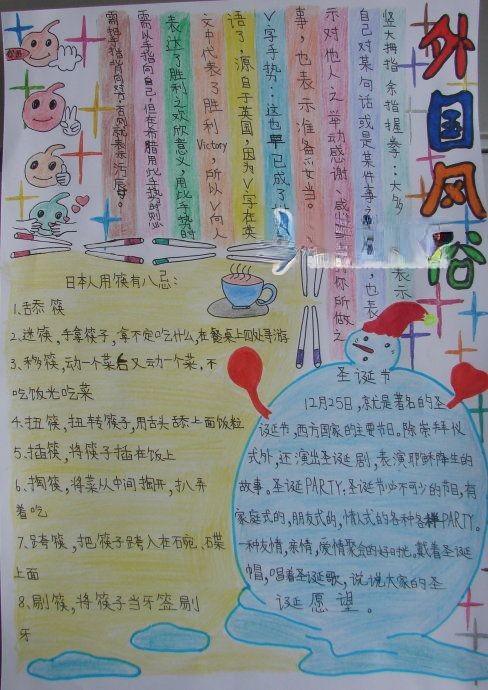 外国风俗
竖大拇指、余指握拳:大多
自己对某句话或是某件事之
示对他人之举动感谢、感
你所做之
事,也表示准备妥当。
V字手势:这也早已成了
语了,源自于英国,因为V字在英
文中代表了胜利Victory,所以V向人
表达了胜利之欢欣意义,用此手势时
需以手指向自己,但在希腊用此手势时则
日本人用筷有八忌:
1、舔筷
2、迷筷,手拿筷子,拿不定吃什么,在餐桌上四处寻游
3、移筷,动一个菜后又动一个菜,不
吃饭光吃菜
4、扭筷,扭转筷子,用舌头舔上面饭粒
5、插筷,将筷子插在饭上
6、掏筷,将菜从中间掏开,扒弄
着吃
7、跨筷,把筷子跨入在碗、碟
上面
8、剔筷,将筷子当牙签剔
牙
圣诞节
12月25日,就是著名的圣
诞节,西方国家的主要节日。除崇拜仪
式外,还演出圣诞剧,表演耶稣降生的
故事。圣诞PARTY.圣诞节必不可少的节目,有
家庭式的,朋友式的,情人式的各种各样PARTY。
一种友情,亲情,爱情聚会的好时光。戴着圣诞
帽,唱着圣诞歌,说说大家的圣
诞愿望。